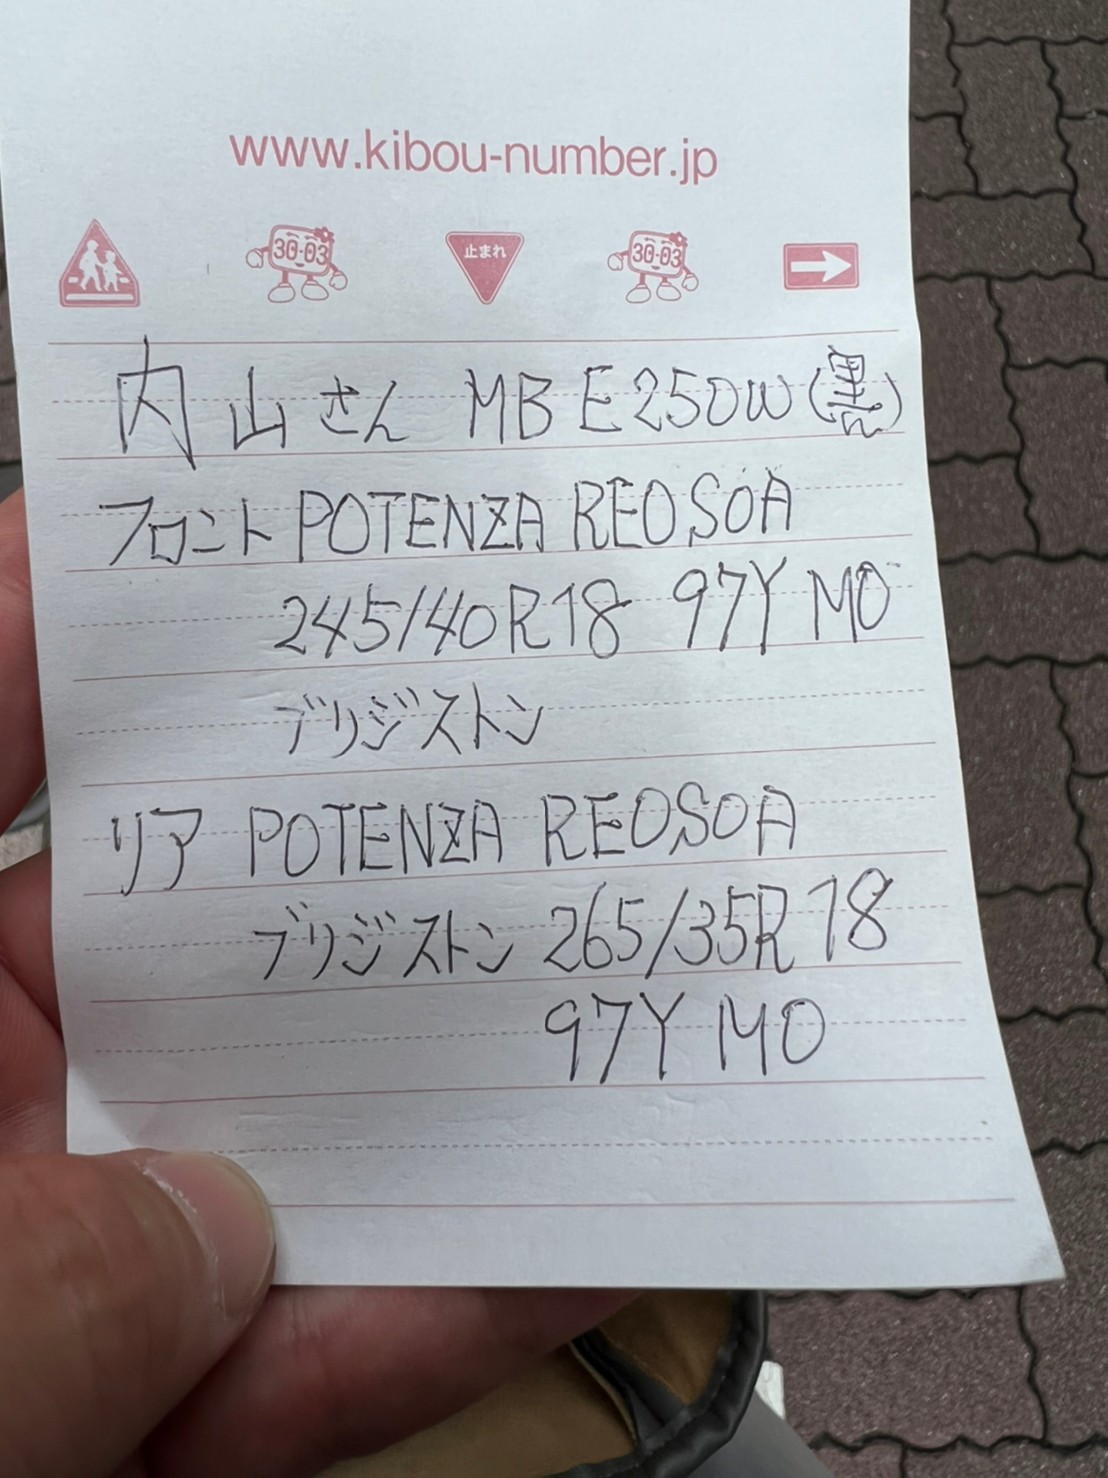 www.kibou-number.jp
30-03 止まれ 30-03
内山さん MB E250W(黒)
フロント POTENZA REO50A
245/40R18 97Y MO
ブリジストン
リア POTENZA REO50A
ブリジストン 265/35R18
97Y MO